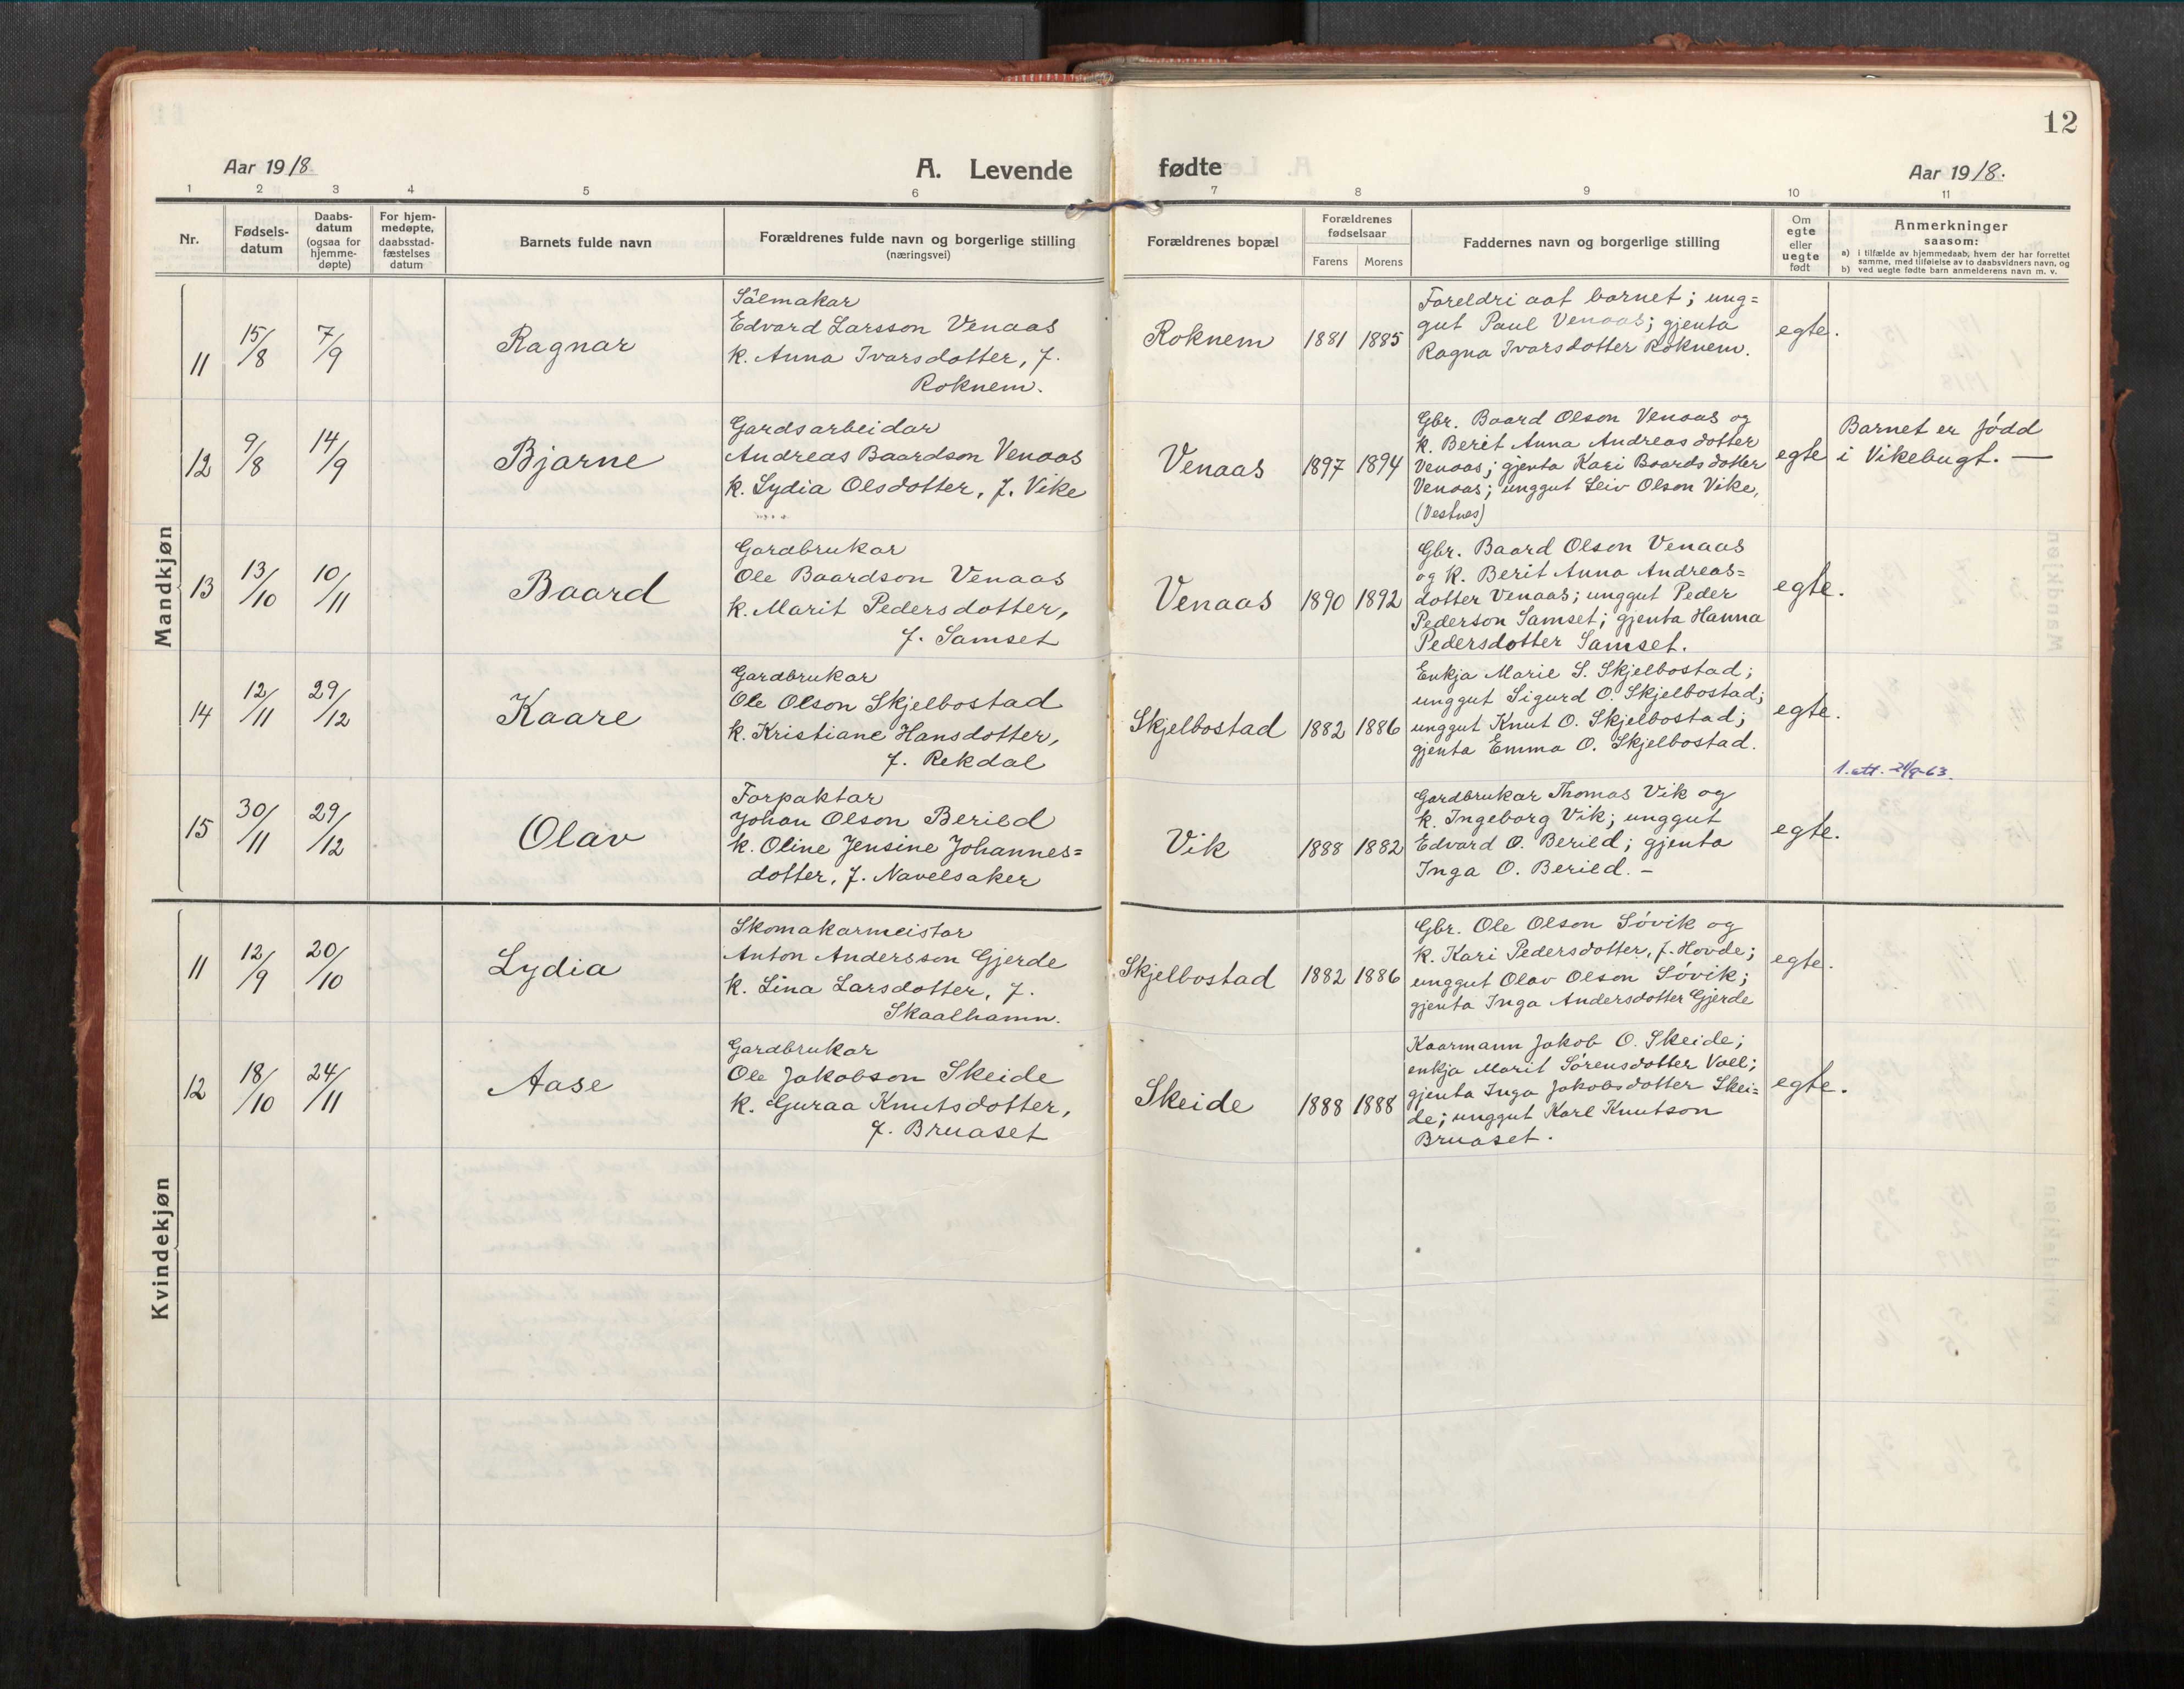 12
Aar 1918.
A. Levende
fødte
Aar 1918.
1 2 3 4 5 6 7 8 9 10 11
Nr.
Fødsels-
datum
Daabs-
datum
(ogsaa for
hjemme-
døpte)
For hjem-
medøpte,
daabsstad-
fæstelses
datum
Barnets fulde navn
Forældrenes fulde navn og borgerlige stilling
(næringsvei)
Forældrenes bopæl
Forældrenes
fødselsaar
Farens Morens
Faddernes navn og borgerlige stilling
Om
egte
eller
uegte
født
Anmerkninger
saasom:
a) i tilfælde av hjemmedaab, hvem der har forrettet
samme, med tilføielse av to daabsvidners navn, og
b) ved uegte fødte barn anmelderens navn m. v.
Mandkjøn
11
15/8
7/9
Ragnar
Sålmakar
Edvard Larsson Venaas
k. Anna Ivarsdotter, f.
Roknem.
Roknem
1881 1885
Foreldri aat barnet; ung=
gut Paul Venaas; gjenta
Ragna Ivarsdotter Roknem.
egte.
12
9/8
14/9
Bjarne
Gardsarbeidar
Andreas Baardson Venaas
k. Lydia Olsdotter, f. Vike
Venaas
1897 1894
Gbr. Baard Olson Venaas og
k. Berit Anna Andreasdotter
Venaas; gjenta Kari Baardsdotter
Venaas; unggut Leiv Olson Vike,
(Vestnes)
egte
Barnet er född
i Vikebugt. —
13
13/10
10/11
Baard
Gardbrukar
Ole Baardson Venaas
k. Marit Pedersdotter,
f. Samset
Venaas
1890 1892
Gbr. Baard Olson Venaas
og k. Berit Anna Andreas=
dotter Venaas; unggut Peder
Pederson Samset; gjenta Hanna
Pedersdotter Samset.
egte.
14
12/11
29/12
Kaare
Gardbrukar
Ole Olson Skjelbostad
k. Kristiane Hansdotter,
f. Rekdal
Skjelbostad
1882 1886
Enkja Marie S. Skjelbostad;
unggut Sigurd O. Skjelbostad;
unggut Knut O. Skjelbostad;
gjenta Emma O. Skjelbostad.
egte.
15
30/11
29/12
Olav
Forpaktar
Johan Olson Berild
k. Oline Jensine Johannes=
dotter, f. Navelsaker
Vik
1888 1882
Gardbrukar Thomas Vik og
k. Ingeborg Vik; unggut
Edvard O. Berild; gjenta
Inga O. Berild. –
egte.
1. att.
Kvindekjøn
11
12/9
20/10
Lydia
Skomakarmeistar
Anton Andersson Gjerde
k. Lina Larsdotter, f.
Skaalhamn.
Skjelbostad
1882 1886
Gbr. Ole Olson Sóvik og
k. Kari Pedersdotter, f. Hovde;
unggut Olav Olson Sóvik;
gjenta Inga Andersdotter Gjerde
egte.
12
18/10
24/11
Aase
Gardbrukar
Ole Jakobson Skeide
k. Guraa Knutsdotter,
f. Bruaset
Skeide
1888 1888
Kaarmann Jakob O. Skeide;
enkja Marit Sórensdotter Voll;
gjenta Inga Jakobsdotter Skei=
de; unggut Karl Knutson
Bruaset.
egte.